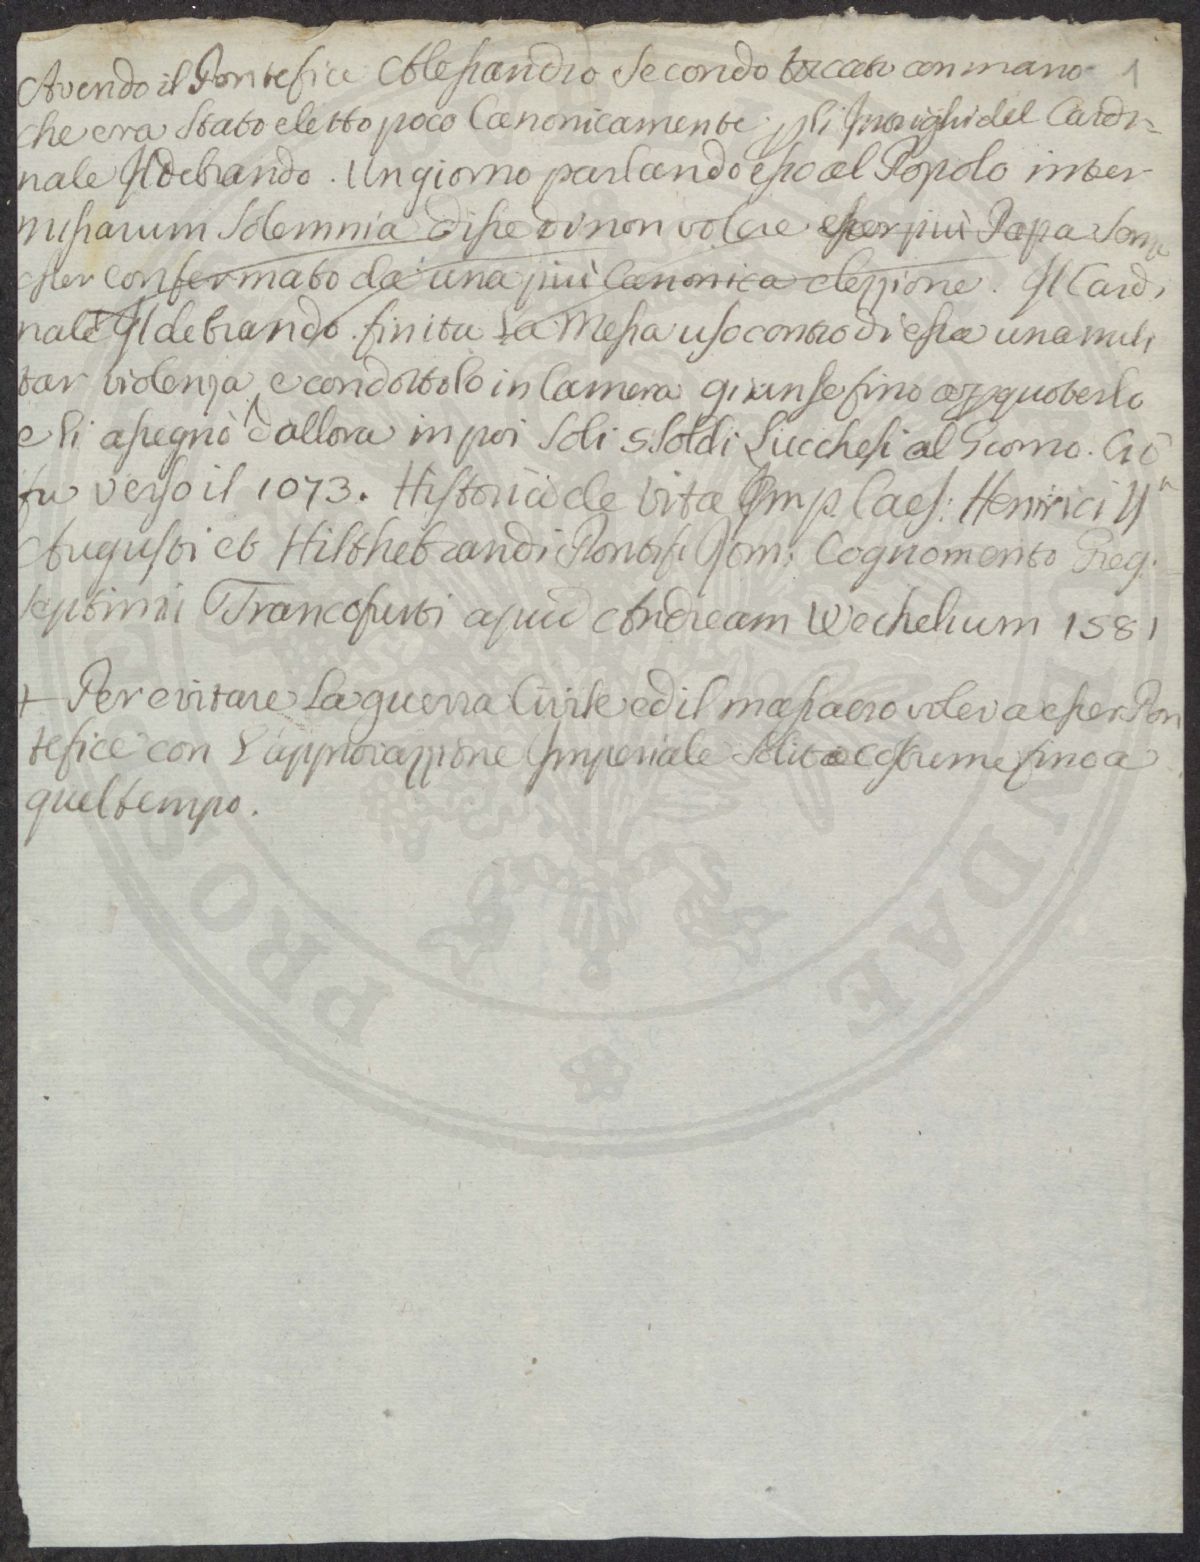 Avendo il Pontefice Alessandro Secondo toccato con mano 1
che era stato eletto poco Canonicamente p gli Intrighi del Cardi=
nale Ildebrando. Un giorno parlando esso al Popolo inter
missarum Solemnia disse di non voler esser più Papa
esser confermato da una più Canonica elezzione. Il Cardi
nale Ildebrando finita la Messa usò contro di essa una mili
tar violenza, e condottolo in Camera giunse fino a percuoterlo
e li assegnò d'allora in poi soli 5 soldi Lucchesi al Giorno. Ciò
fu verso il 1073. Historia de Vita Imp. Caes: Henrici
Augusti et Hilthebrandi Pontif. Rom: Cognomento Greg.
septimi Francofurti apud Andream Wechelium 1581
+ Per evitare la guerra Civile ed il massacro voleva esser Pon
tefice con L'approvazzione Imperiale solito costume fino a
quel tempo.
PROS
VIDAE